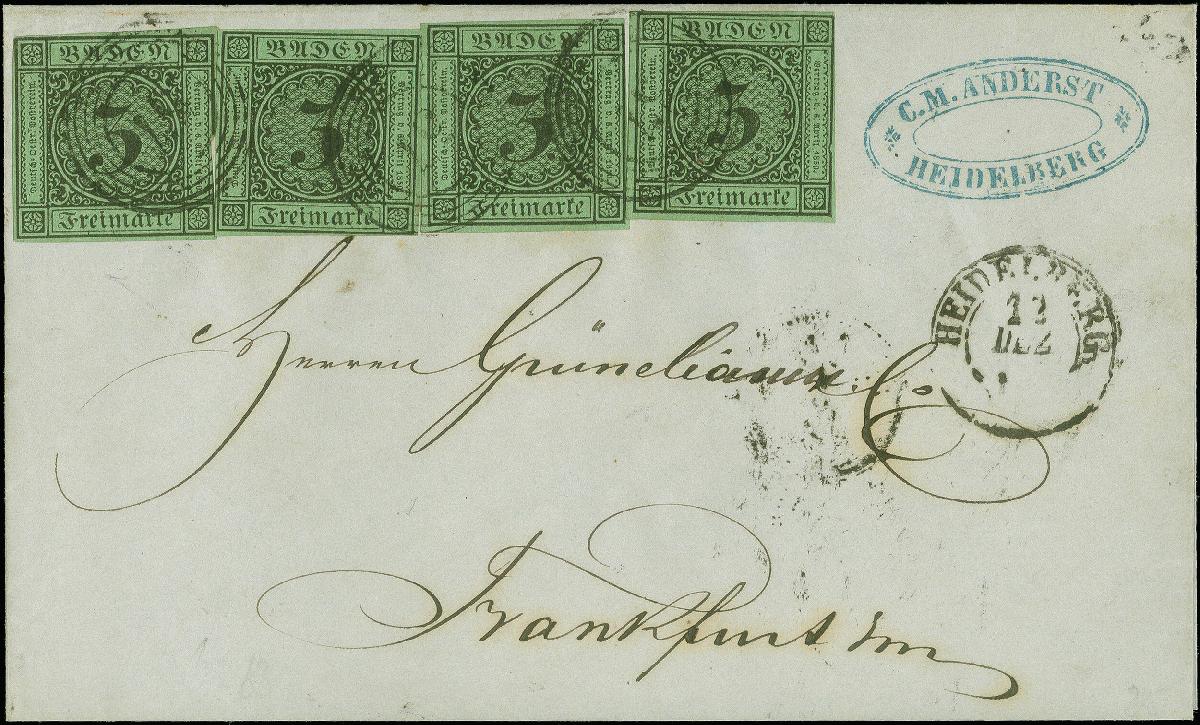 BADEN
3
Freimarke
BADEN
3
Freimarke
BADEN
3
Freimarke
BADEN
3
Freimarke
C. M. ANDERST
HEIDELBERG
HEIDELBERG
DEZ
Herren Grünebaum & Co
Frankfurt a/m